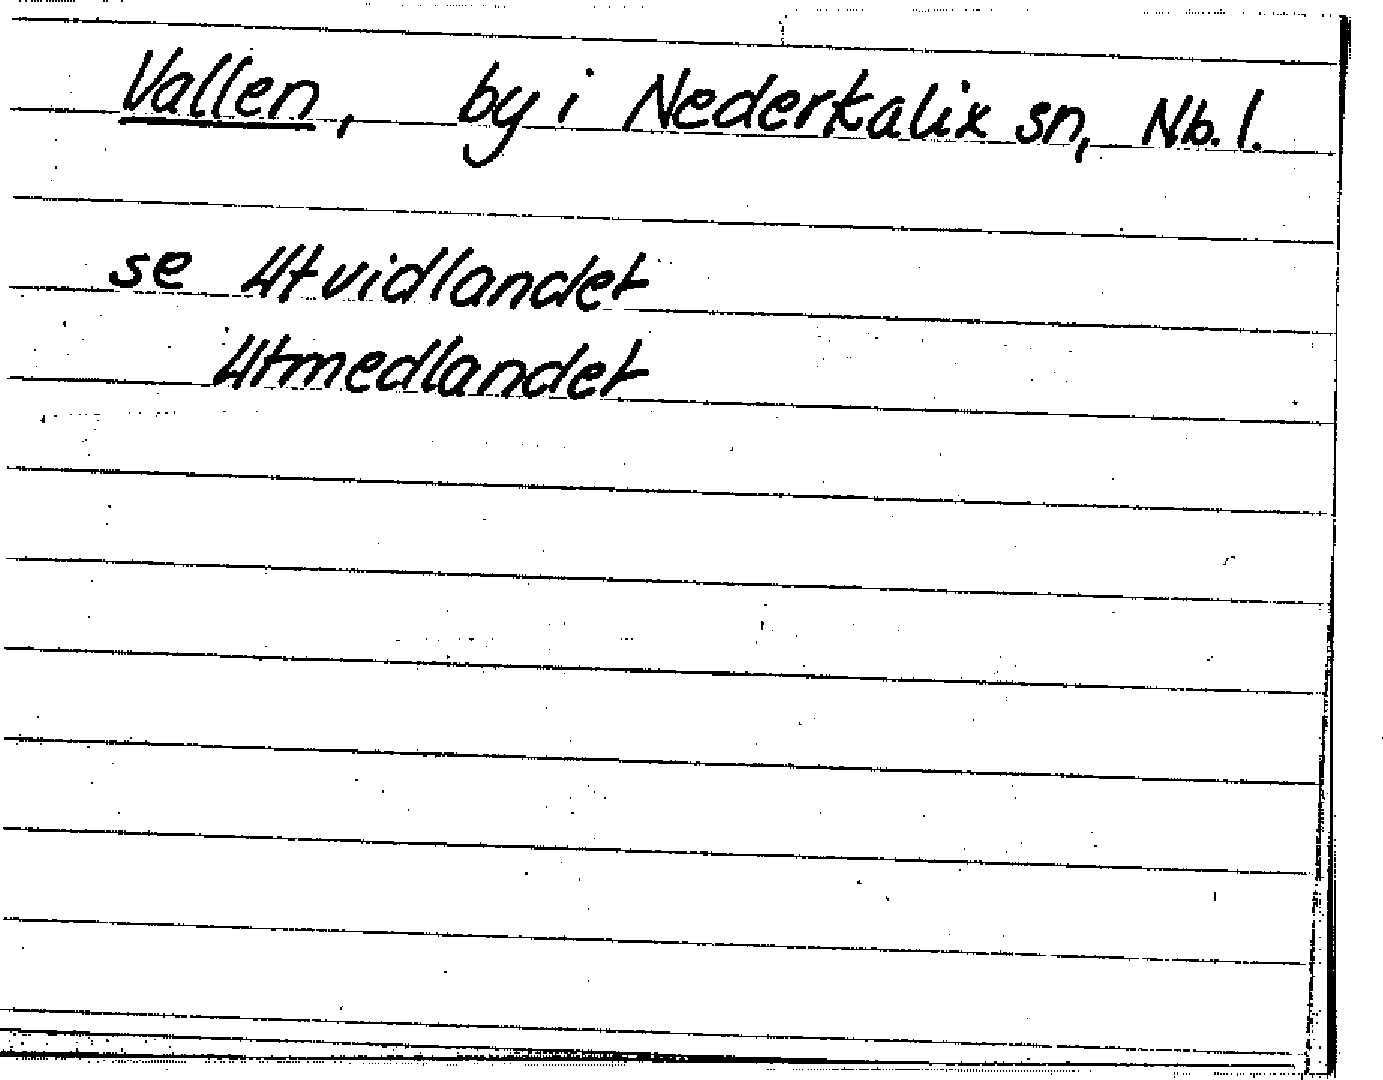 Vallen, by i Nederkalix sn, Nb. l.
se Utvidlandet
Utmedlandet